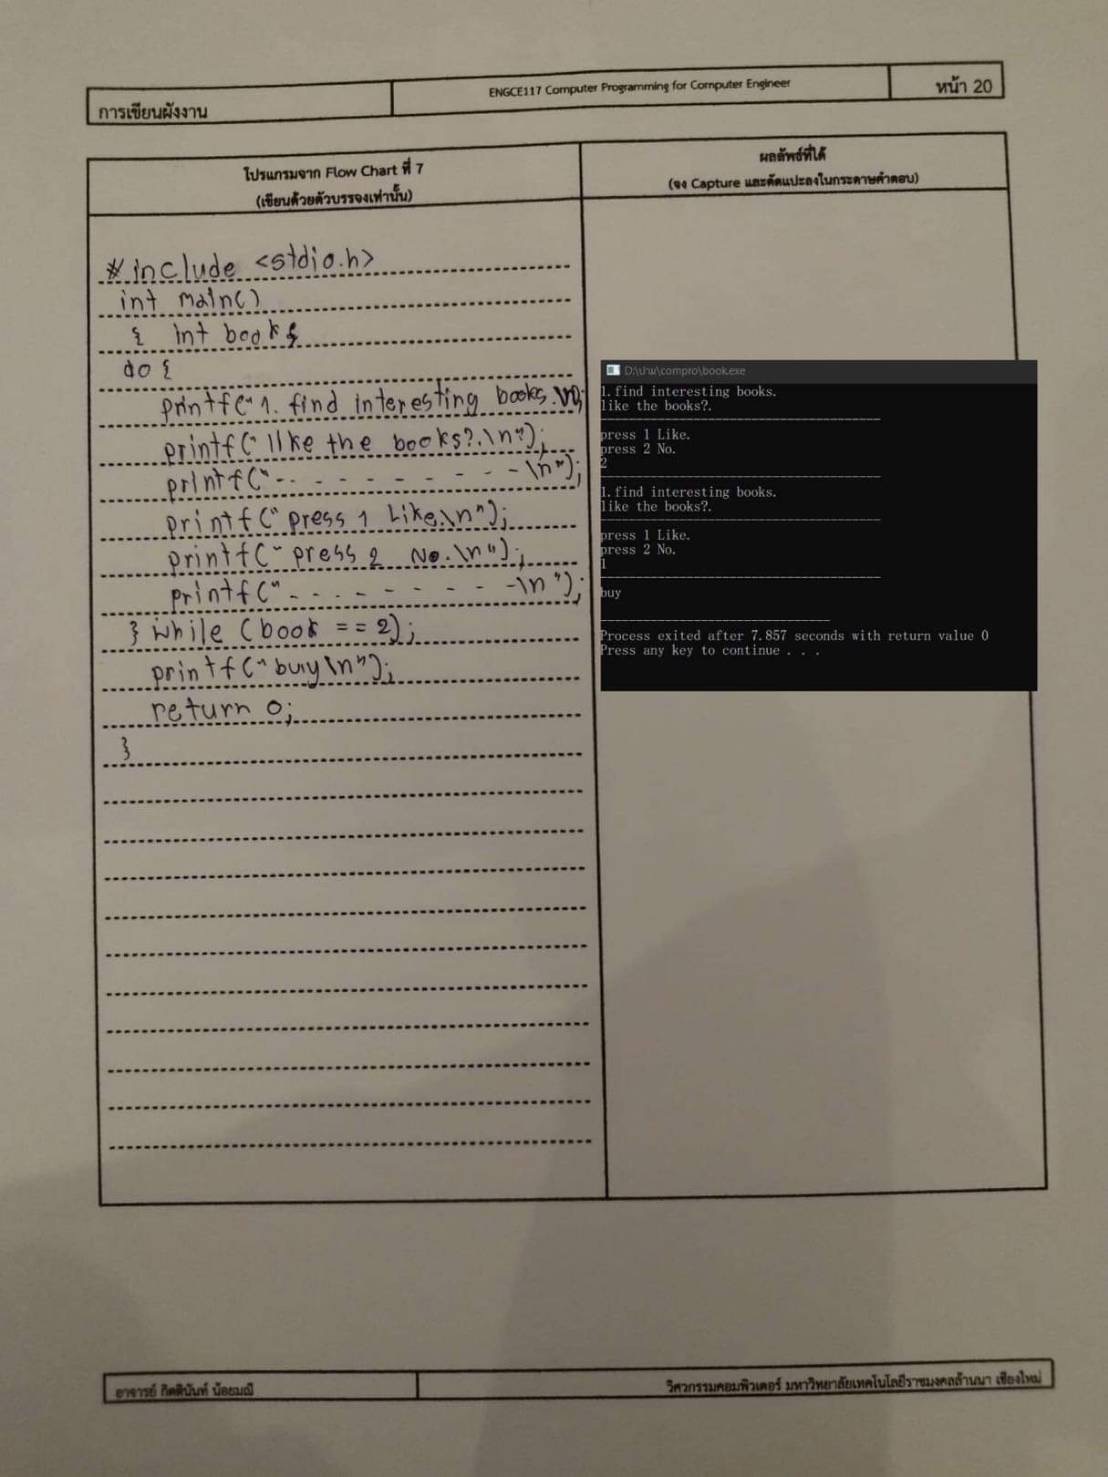 การเขียนผังงาน
ENGCE117 Computer Programming for Computer Engineer
หน้า 20
โปรแกรมจาก Flow Chart ที่ 7
(เขียนด้วยตัวบรรจงเท่านั้น)
ผลลัพธ์ที่ได้
(จง Capture และตัดแปะลงในกระดาษคำตอบ)
#include <stdio.h>
int main()
{ int book;
do {
printf("1. find interesting books.\n");
printf("like the books?.\n");
printf("- - - - - - - - -\n");
printf("press 1 Like.\n");
printf("press 2 No.\n");
printf("- - - - - - - - -\n");
} while (book == 2);
printf("buy\n");
return 0;
}
D:\ปาม\compro\book.exe
1.find interesting books.
like the books?.
----------------------------------------
press 1 Like.
press 2 No.
2
----------------------------------------
1.find interesting books.
like the books?.
----------------------------------------
press 1 Like.
press 2 No.
1
----------------------------------------
buy
--------------------------------
Process exited after 7.857 seconds with return value 0
Press any key to continue . . .
อาจารย์ กิตตินันท์ น้อยมณี
วิศวกรรมคอมพิวเตอร์ มหาวิทยาลัยเทคโนโลยีราชมงคลล้านนา เชียงใหม่